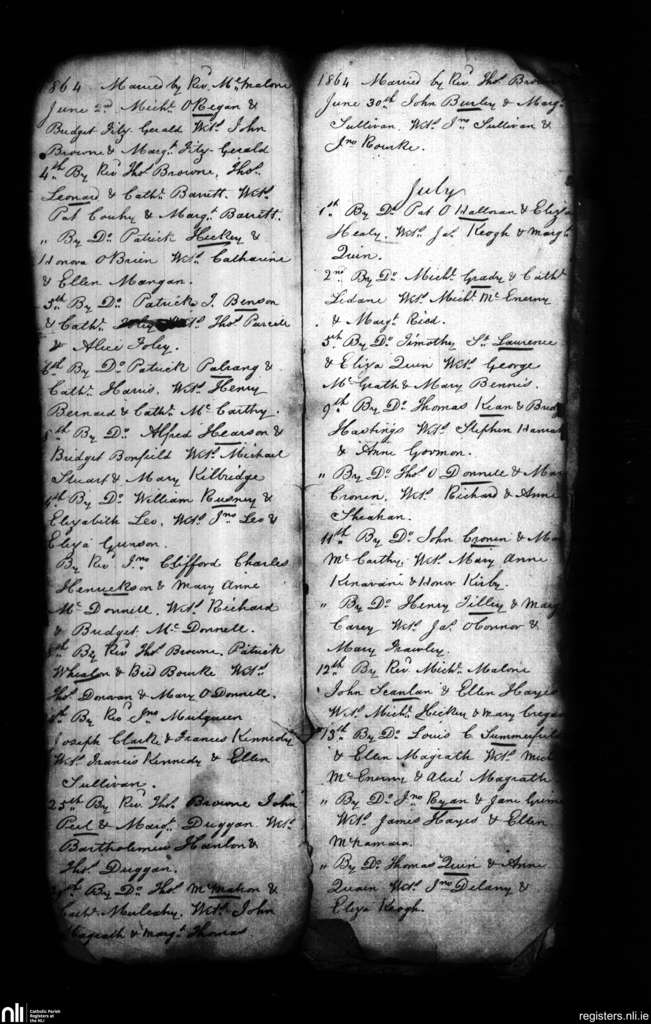 1864 Married by Rev. Mc. Malone
June 2d Michl. O'Regan &
Bridget Fitz-Gerald Wts. John
Browne & Margt. Fitz-Gerald
4th By Revd. Thos. Browne, Thos.
Leonard & Cathe. Barrett. Wts.
Pat Couhy & Margt. Barrett.
" By Do. Patrick Hickey &
Honora O'Brien Wts. Catharine
& Ellen Mangan.
5th By Do. Patrick J. Benson
& Cathe. Wts. Thos. Purcell
& Alice Foley.
6th By Do. Patrick
Cathe. Harris. Wts. Henry
Bernard & Cathe. Mc.Carthy.
By Do. Alfred Hearson &
Bridget Bonfield Wts. Michael
Stuart & Mary Kilbridge
By Do. William &
Elizabeth Leo. Wts. Jno. Leo &
Eliza
By Revd. Jno. Clifford Charles
Henuckson & Mary Anne
Mc.Donnell. Wts. Richard
& Bridget Mc.Donnell.
By Revd. Thos. Browne. Patrick
Whealon & Bed Bourke Wts.
Thos. Donovan & Mary O'Donnell.
By Revd. Jno. Mulqueen
Joseph Clarke & Frances Kennedy
Wts. Francis Kennedy & Ellen
Sullivan.
25th By Revd. Thos. Browne John
Peel & Margt. Duggan Wts.
Bartholomew Hanlon &
Thos. Duggan.
By Do. Thos. McMahon &
Cathe. Mulcahy. Wts. John
Magrath & Margt. Thomas
1864 Married by Revd. Thos. Browne
June 30th John Burley & Margt.
Sullivan. Wts. Jno. Sullivan &
Jno. Rourke.
July
1st By Do. Pat O'Halloran & Eliza
Healy. Wts. Jas. Keogh & Margt.
Quin.
2nd By Do. Michl. Grady & Cathe.
Lidane Wts. Michl. Mc.Enerny
& Margt. Reed.
5th By Do. Timothy St. Lawrence
& Eliza Quin Wts. George
Mc.Grath & Mary Bennis.
9th By Do. Thomas Kean & Brid
Hastings Wts. Stephen
& Anne Gorman.
" By Do. Thos. O'Donnell & Mary
Cronen. Wts. Richard & Anne
Sheahan.
11th By Do. John Cronen & Mary
Mc.Carthy. Wts. Mary Anne
Kinavane & Honor Kirby.
" By Do. Henry Tilley & Mary
Carey Wts. Jas. O'Connor &
Mary Frawley.
12th By Revd. Michl. Malone
John Scanlan & Ellen Hayes
Wts. Michl. Hickey & Mary Cregan
13th By Do. Louis C. Summerfield
& Ellen Magrath Wts. Mich
Mc.Enerny & Alice Magrath
" By Do. Jno. Ryan & Jane Grimes
Wts. James Hayes & Ellen
McNamara.
" By Do. Thomas Quin & Anne
Quain Wts. Jno. Delany &
Eliza Keogh.
nli Catholic Parish
Registers at
the NLI
registers.nli.ie